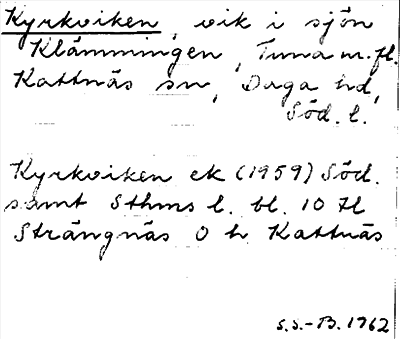 Kyrkviken, vik i sjön
Klämmingen, Tuna m.fl.
Kattnäs sn, Daga hd,
Söd. l.
Kyrkviken ek (1959) Söd.
samt Sthms l. bl. 10 H
Strängnäs O h Kattnäs
S.S.-B. 1962